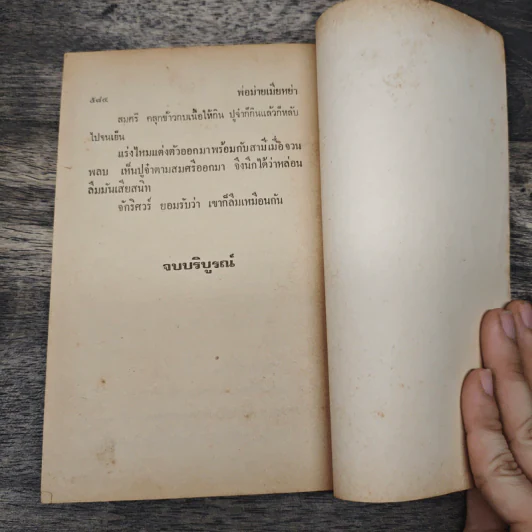 ๕๘๔ พ่อม่ายเมียหย่า
สมศรี คลุกข้าวกบเนื้อให้กิน ปูจ๋าก็กินแล้วก็หลับ
ไปจนเย็น
แร่งไหมแต่งตัวออกมาพร้อมกับสามีเมื่อจวน
พลบ เห็นปูจ๋าตามสมศรีออกมา จึงนึกได้ว่าหล่อน
ลืมมันเสียสนิท
จักริศวร์ ยอมรับว่า เขาก็ลืมเหมือนกัน
จบบริบูรณ์